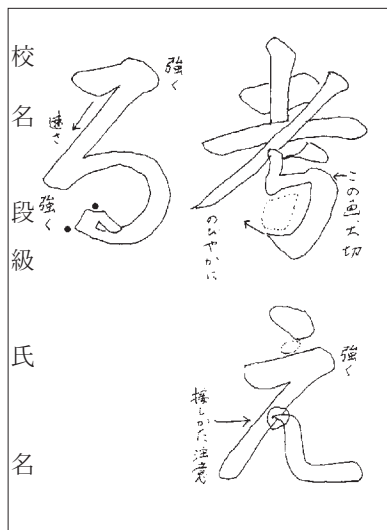 考え
この画大切
のびやかに
強く
接しかた注意
る
強く
速さ
強く
校名 段級 氏名